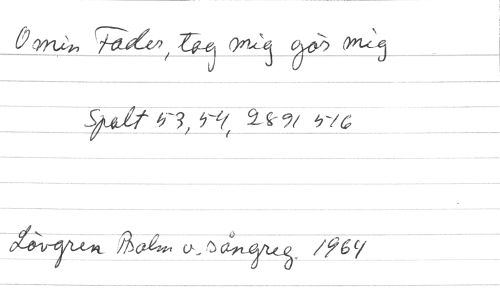 O min Fader, tag mig gör mig
Spalt 53, 54, 289, 516
Lövgren Psalm o. sångreg. 1964